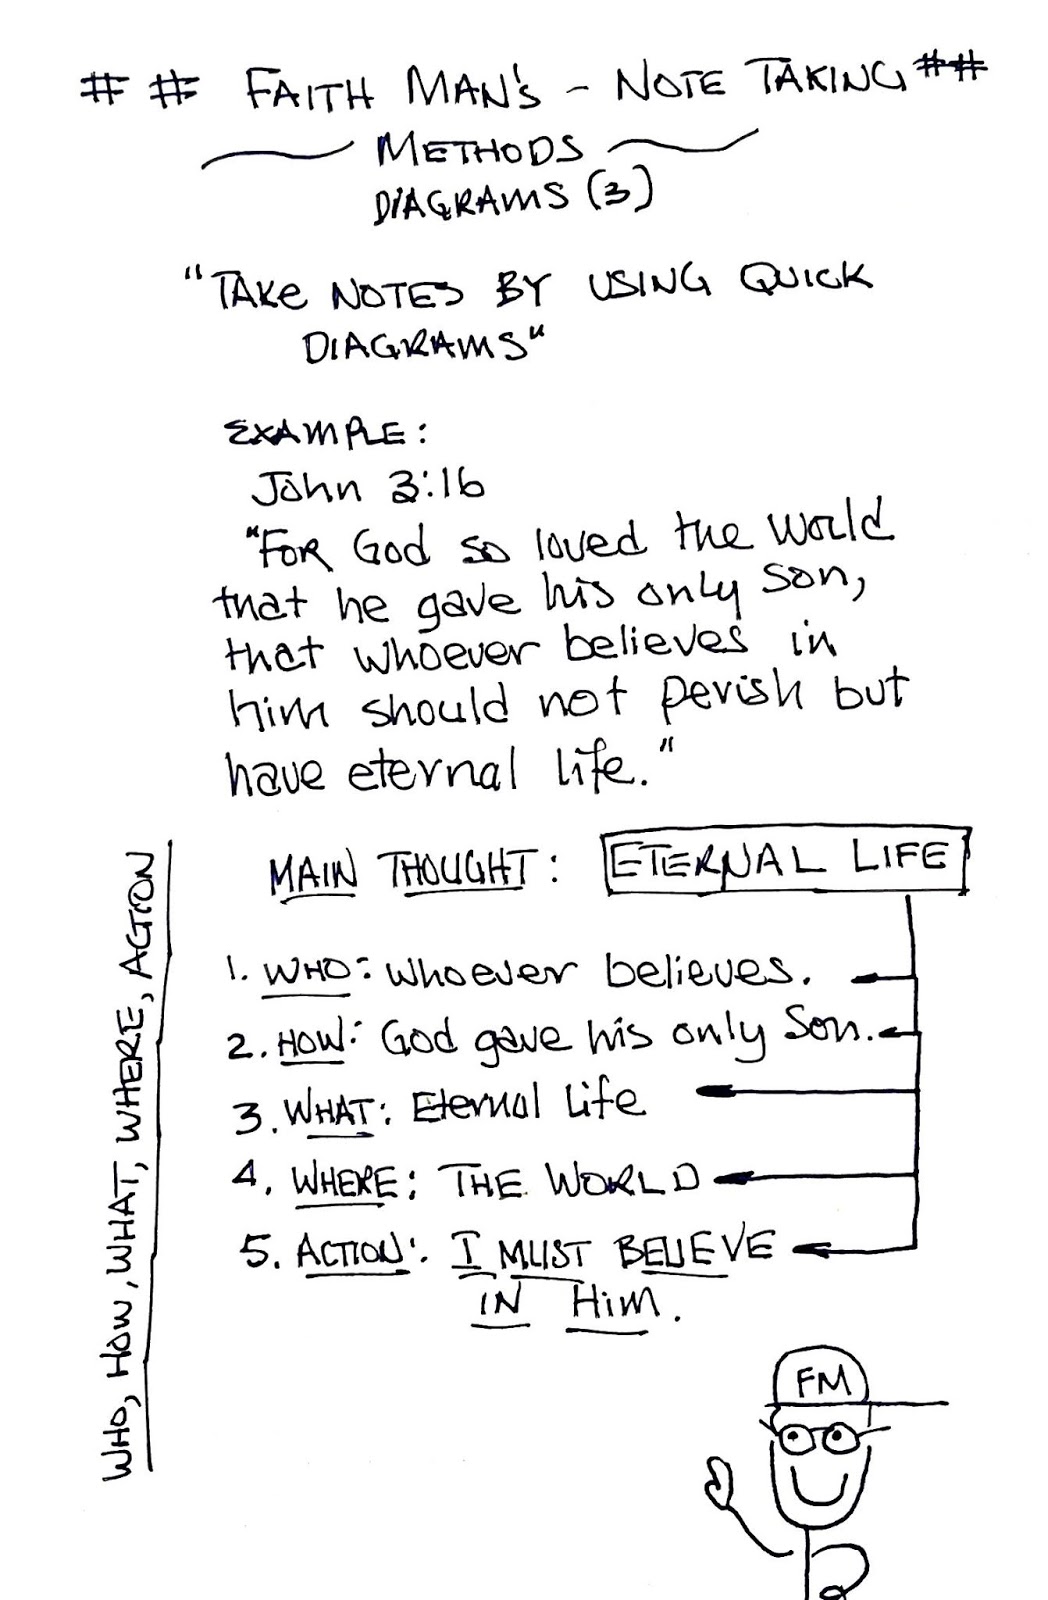 ## FAITH MAN'S - NOTE TAKING ##
METHODS
DIAGRAMS (3)
"TAKE NOTES BY USING QUICK
DIAGRAMS"
EXAMPLE:
John 3:16
"FOR God so loved the world
that he gave his only son,
that whoever believes in
him should not perish but
have eternal life."
MAIN THOUGHT: ETERNAL LIFE
1. WHO: whoever believes.
2. HOW: God gave his only Son.
3. WHAT: Eternal Life
4. WHERE: THE WORLD
5. ACTION: I MUST BELIEVE
IN Him.
WHO, HOW, WHAT, WHERE, ACTION
FM